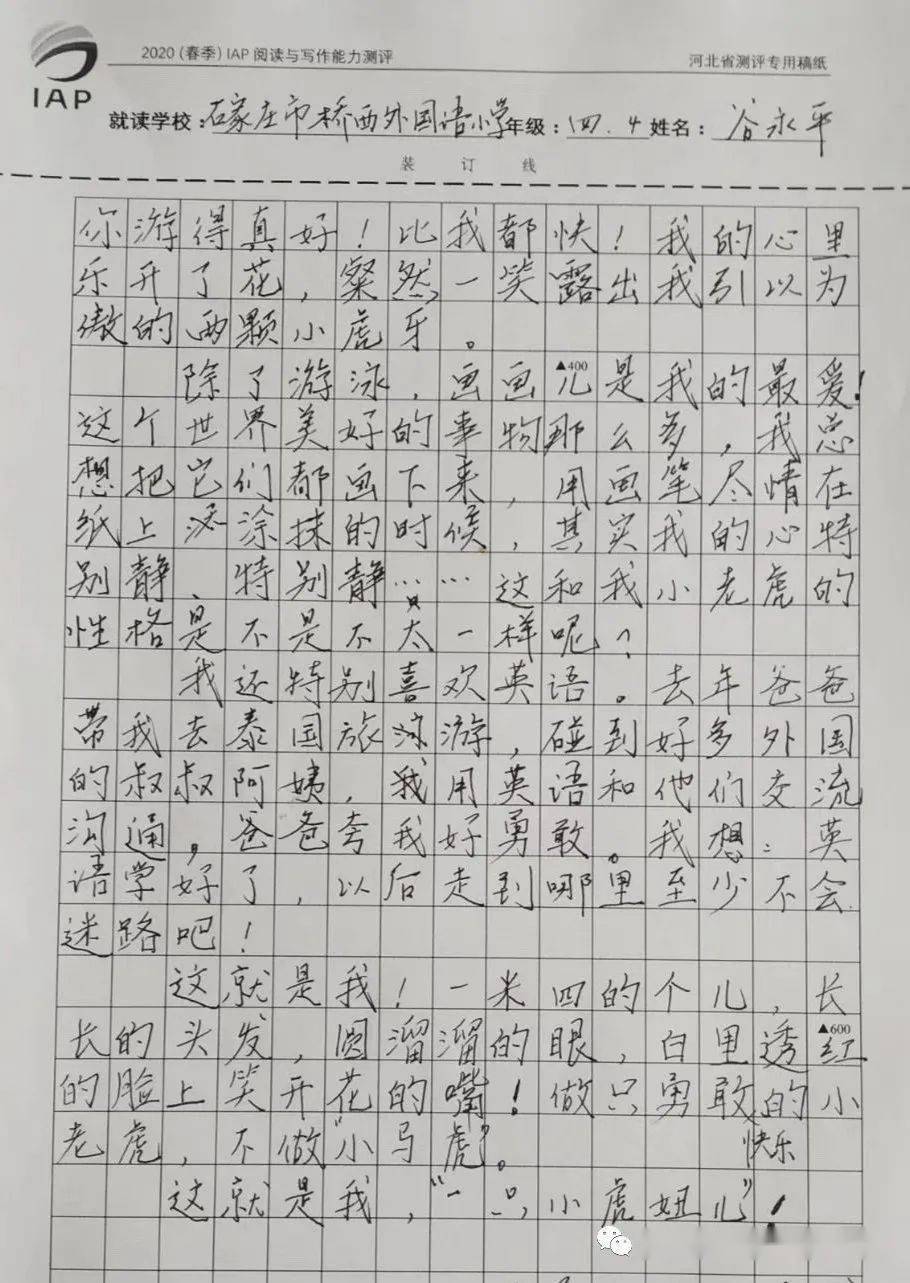 IAP
2020（春季）IAP 阅读与写作能力测评
河北省测评专用稿纸
就读学校：石家庄市桥西外国语小学年级：四.4姓名：谷永平
装 订 线
你游得真好！比我都快！我的心里
乐开了花，粲然一笑露出我引以为
傲的两颗小虎牙。
▲400
除了游泳，画画儿是我的最爱！
这个世界美好的事物那么多，我总
想把它们都画下来，用画笔尽情在
纸上涂抹的时候，其实我的心特
别静、特别静……这和我小老虎的
性格是不是不太一样呢？
我还特别喜欢英语。去年爸爸
带我去泰国旅游，碰到好多外国
的叔叔阿姨，我用英语和他们交流
沟通，爸爸夸我好勇敢。我想：英
语学好了，以后走到哪里至少不会
迷路吧！
这就是我！一米四的个儿，长
▲600
长的头发，圆溜溜的眼，白里透红
的脸上笑开花的嘴！做只勇敢的小
快乐
老虎，不做“小马虎”。
这就是我，“一只小虎妞儿”！